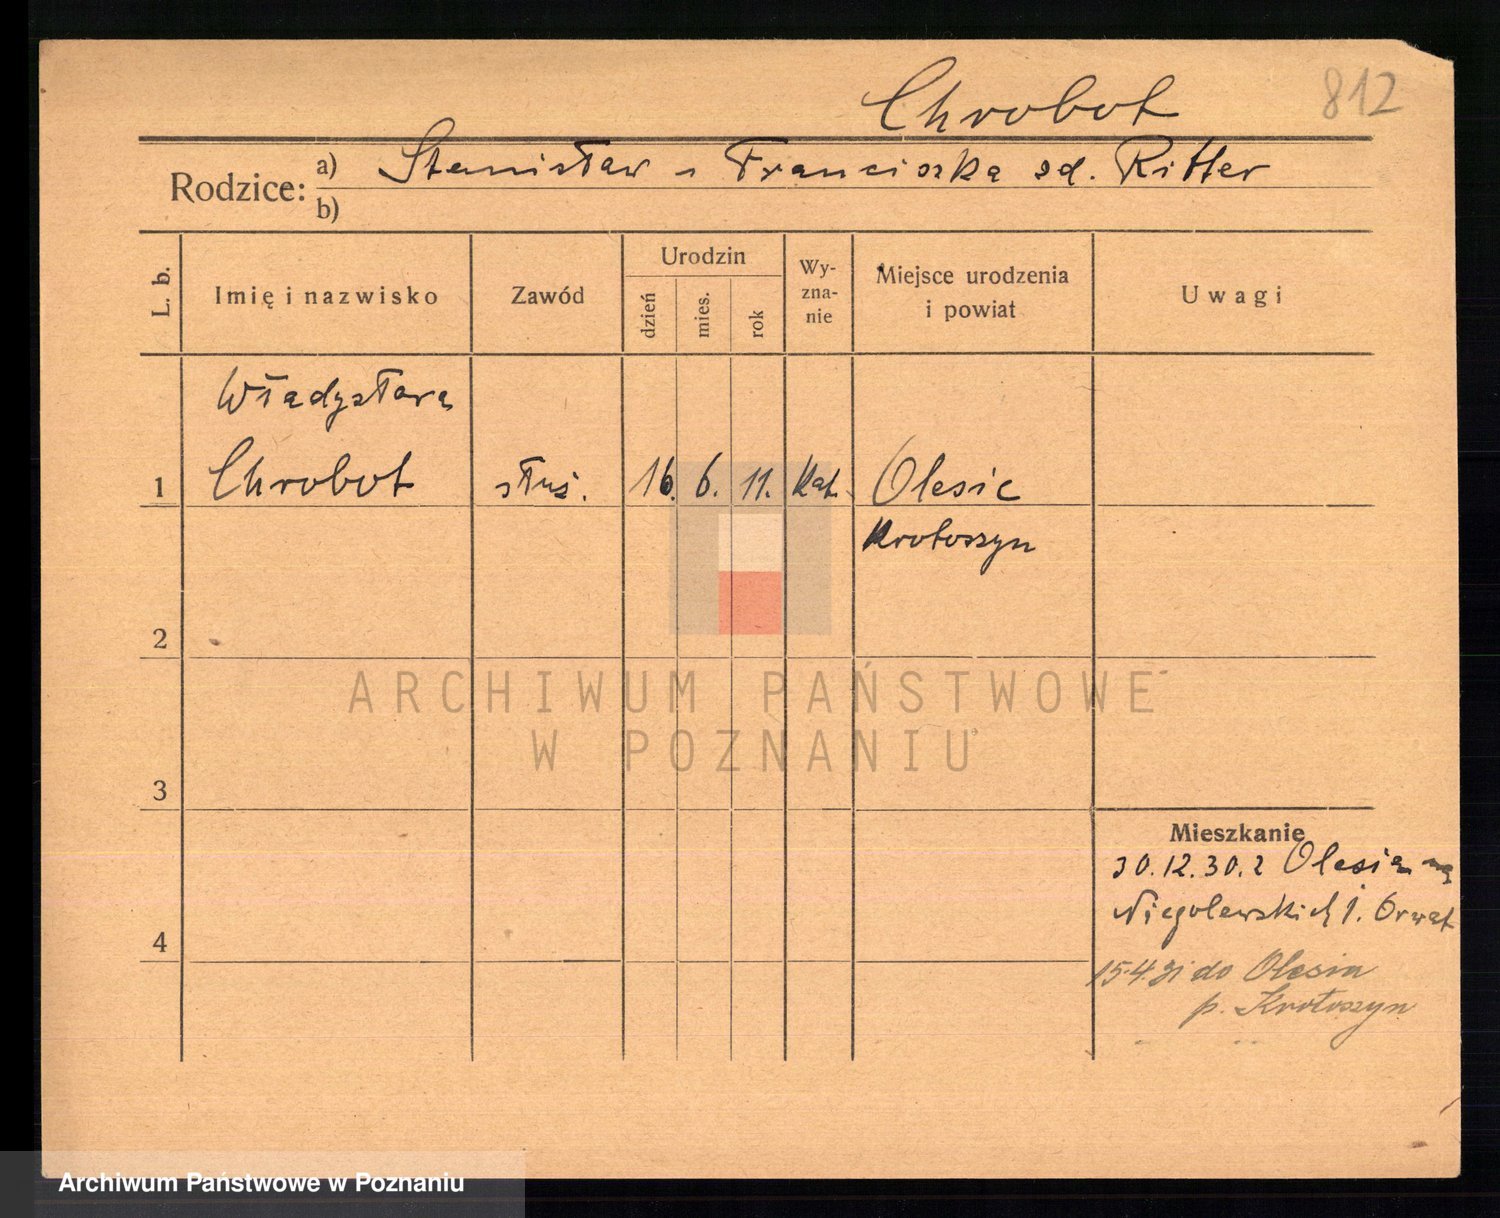 Chrobot
812
Rodzice: a) Stanisław i Franciszka zd. Ritter
b)
L. b.
Imię i nazwisko
Zawód
Urodzin
dzień
mies.
rok
Wy-
zna-
nie
Miejsce urodzenia
i powiat
Uwagi
Władysława
1 Chrobot służ. 16. 6. 11. kat. Olesie
Krotoszyn
2
ARCHIWUM PAŃSTWOWE
W POZNANIU
3
Mieszkanie
30.12.30. z Olesia na
Niegolewskich 1. Orwat
4
15.4.31 do Olesia
p. Krotoszyn
Archiwum Państwowe w Poznaniu